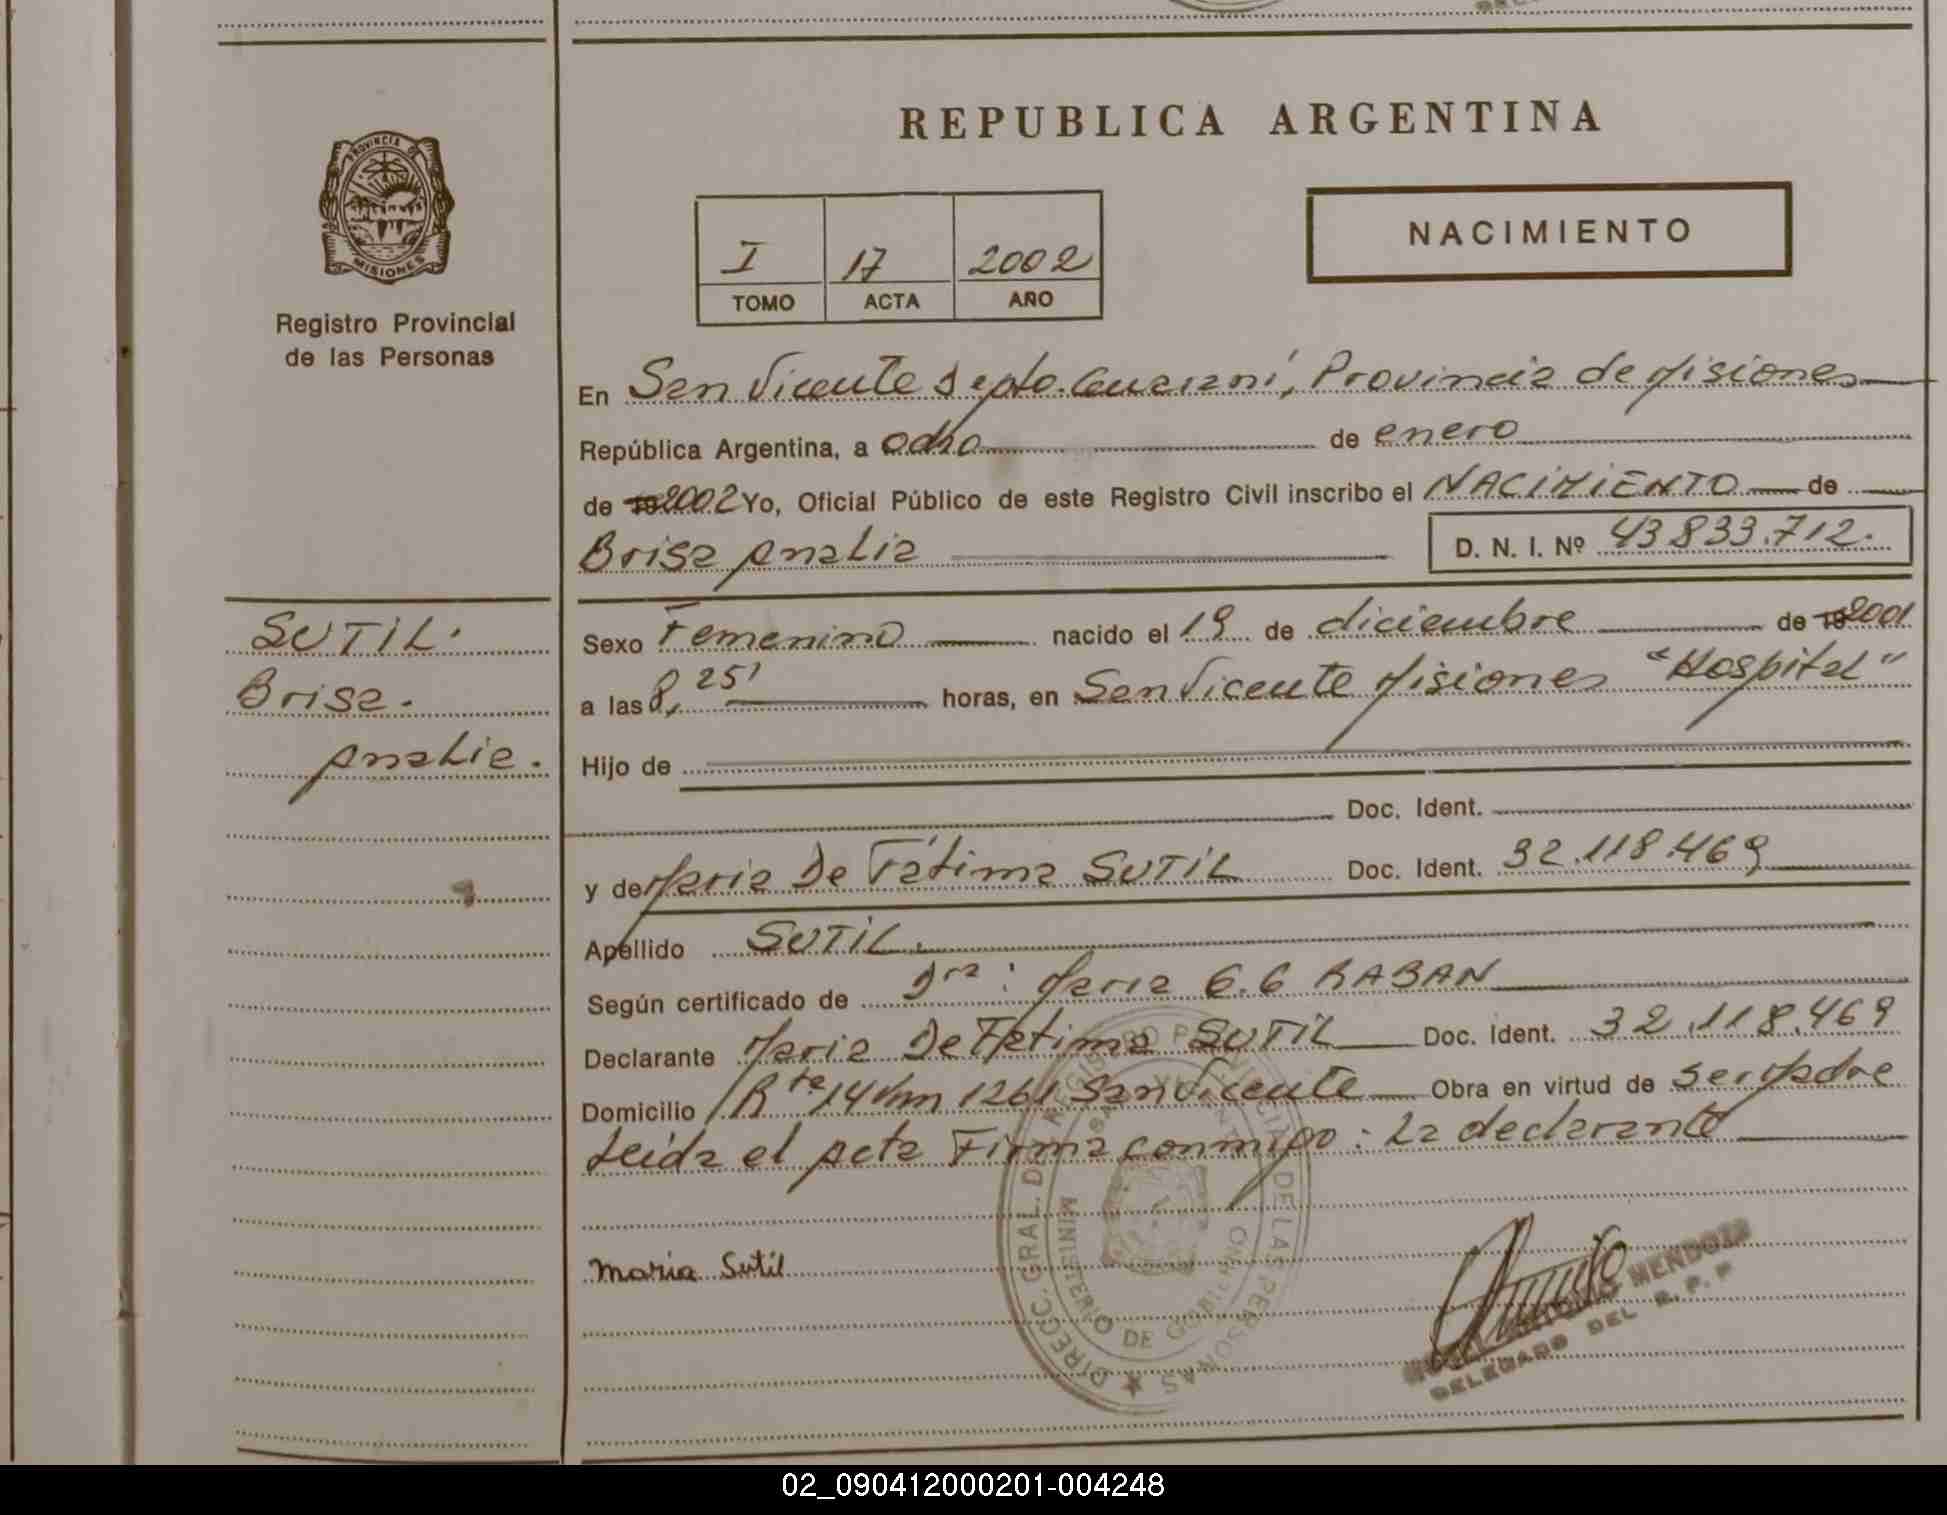 PROVINCIA DE
MISIONES
Registro Provincial
de las Personas
REPUBLICA ARGENTINA
NACIMIENTO
I 17 2002
TOMO ACTA AÑO
En San Vicente Depto. Guarani, Provincia de Misiones
República Argentina, a ocho de enero
de 19 2002 Yo, Oficial Público de este Registro Civil inscribo el NACIMIENTO de
Brisa Analia D. N. I. Nº 43.833.712.
SUTIL.
Brisa.
Analia.
Sexo Femenino nacido el 19 de diciembre de 19 2001
a las 8,25' horas, en San Vicente Misiones "Hospital"
Hijo de
Doc. Ident.
y de Maria De Fátima SUTIL Doc. Ident. 32.118.469
Apellido SUTIL.
Según certificado de Dra: Maria G.G RABAN
Declarante Maria De Fatima SUTIL Doc. Ident. 32.118.469
Domicilio Rta 14 Km 1261 San Vicente Obra en virtud de ser Madre
Leida el acta Firma conmigo: La declarante
Maria Sutil
DIRECC. GRAL. DEL REGISTRO PROVINCIAL DE LAS PERSONAS
MINISTERIO DE GOBIERNO
SAN VICENTE
ANTONIO MENDOZA
DELEGADO DEL R. P. P.
02_090412000201-004248